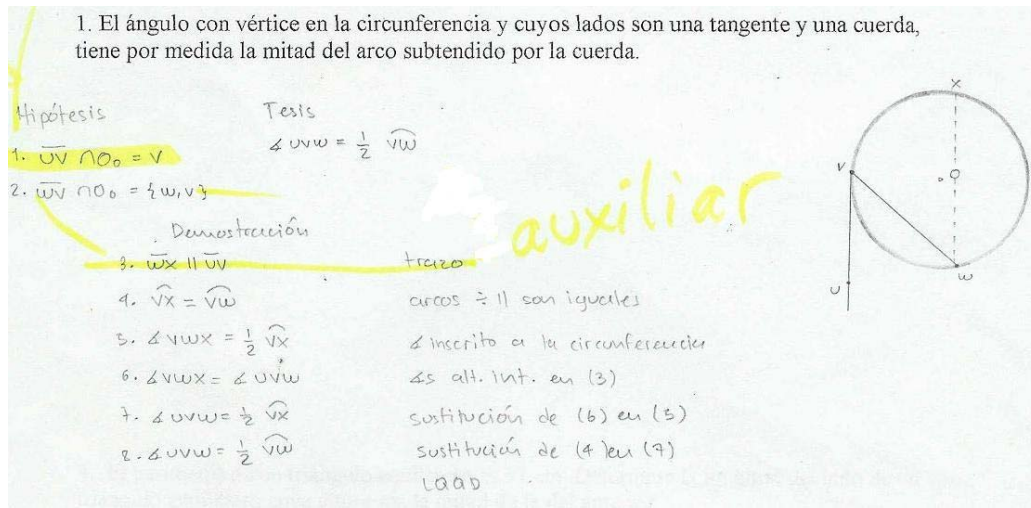 1. El ángulo con vértice en la circunferencia y cuyos lados son una tangente y una cuerda,
tiene por medida la mitad del arco subtendido por la cuerda.
Hipótesis Tesis
∡UVW = 1/2 V͡W
1. U̅V̅ ∩ O₀ = V
2. W̅V̅ ∩ O₀ = {W,V}
auxiliar
Demostración
3. W̅X̅ || U̅V̅ trazo
4. V͡X = V͡W arcos ÷ || son iguales
5. ∡VWX = 1/2 V͡X ∡ inscrito a la circunferencia
6. ∡VWX = ∡UVW ∡s alt. int. en (3)
7. ∡UVW = 1/2 V͡X sustitución de (6) en (5)
8. ∡UVW = 1/2 V͡W sustitución de (4) en (7)
LQQD
X
V
O
W
U